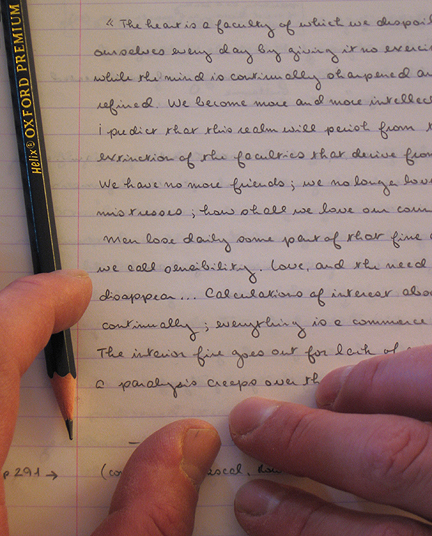 Helix OXFORD PREMIUM
“The heart is a faculty of which we despoil
ourselves every day by giving it no exerci
while the mind is continually sharpened an
refined. We become more and more intellec
I predict that this realm will perish from t
extinction of the faculties that derive from
We have no more friends; we no longer love
mistresses; how shall we love our coun
Men lose daily some part of that fine
we call sensibility. Love, and the need
disappear... Calculations of interest abso
continually; everything is a commerce
The interior fire goes out for lack of
a paralysis creeps over th
p 291 → (co escal,